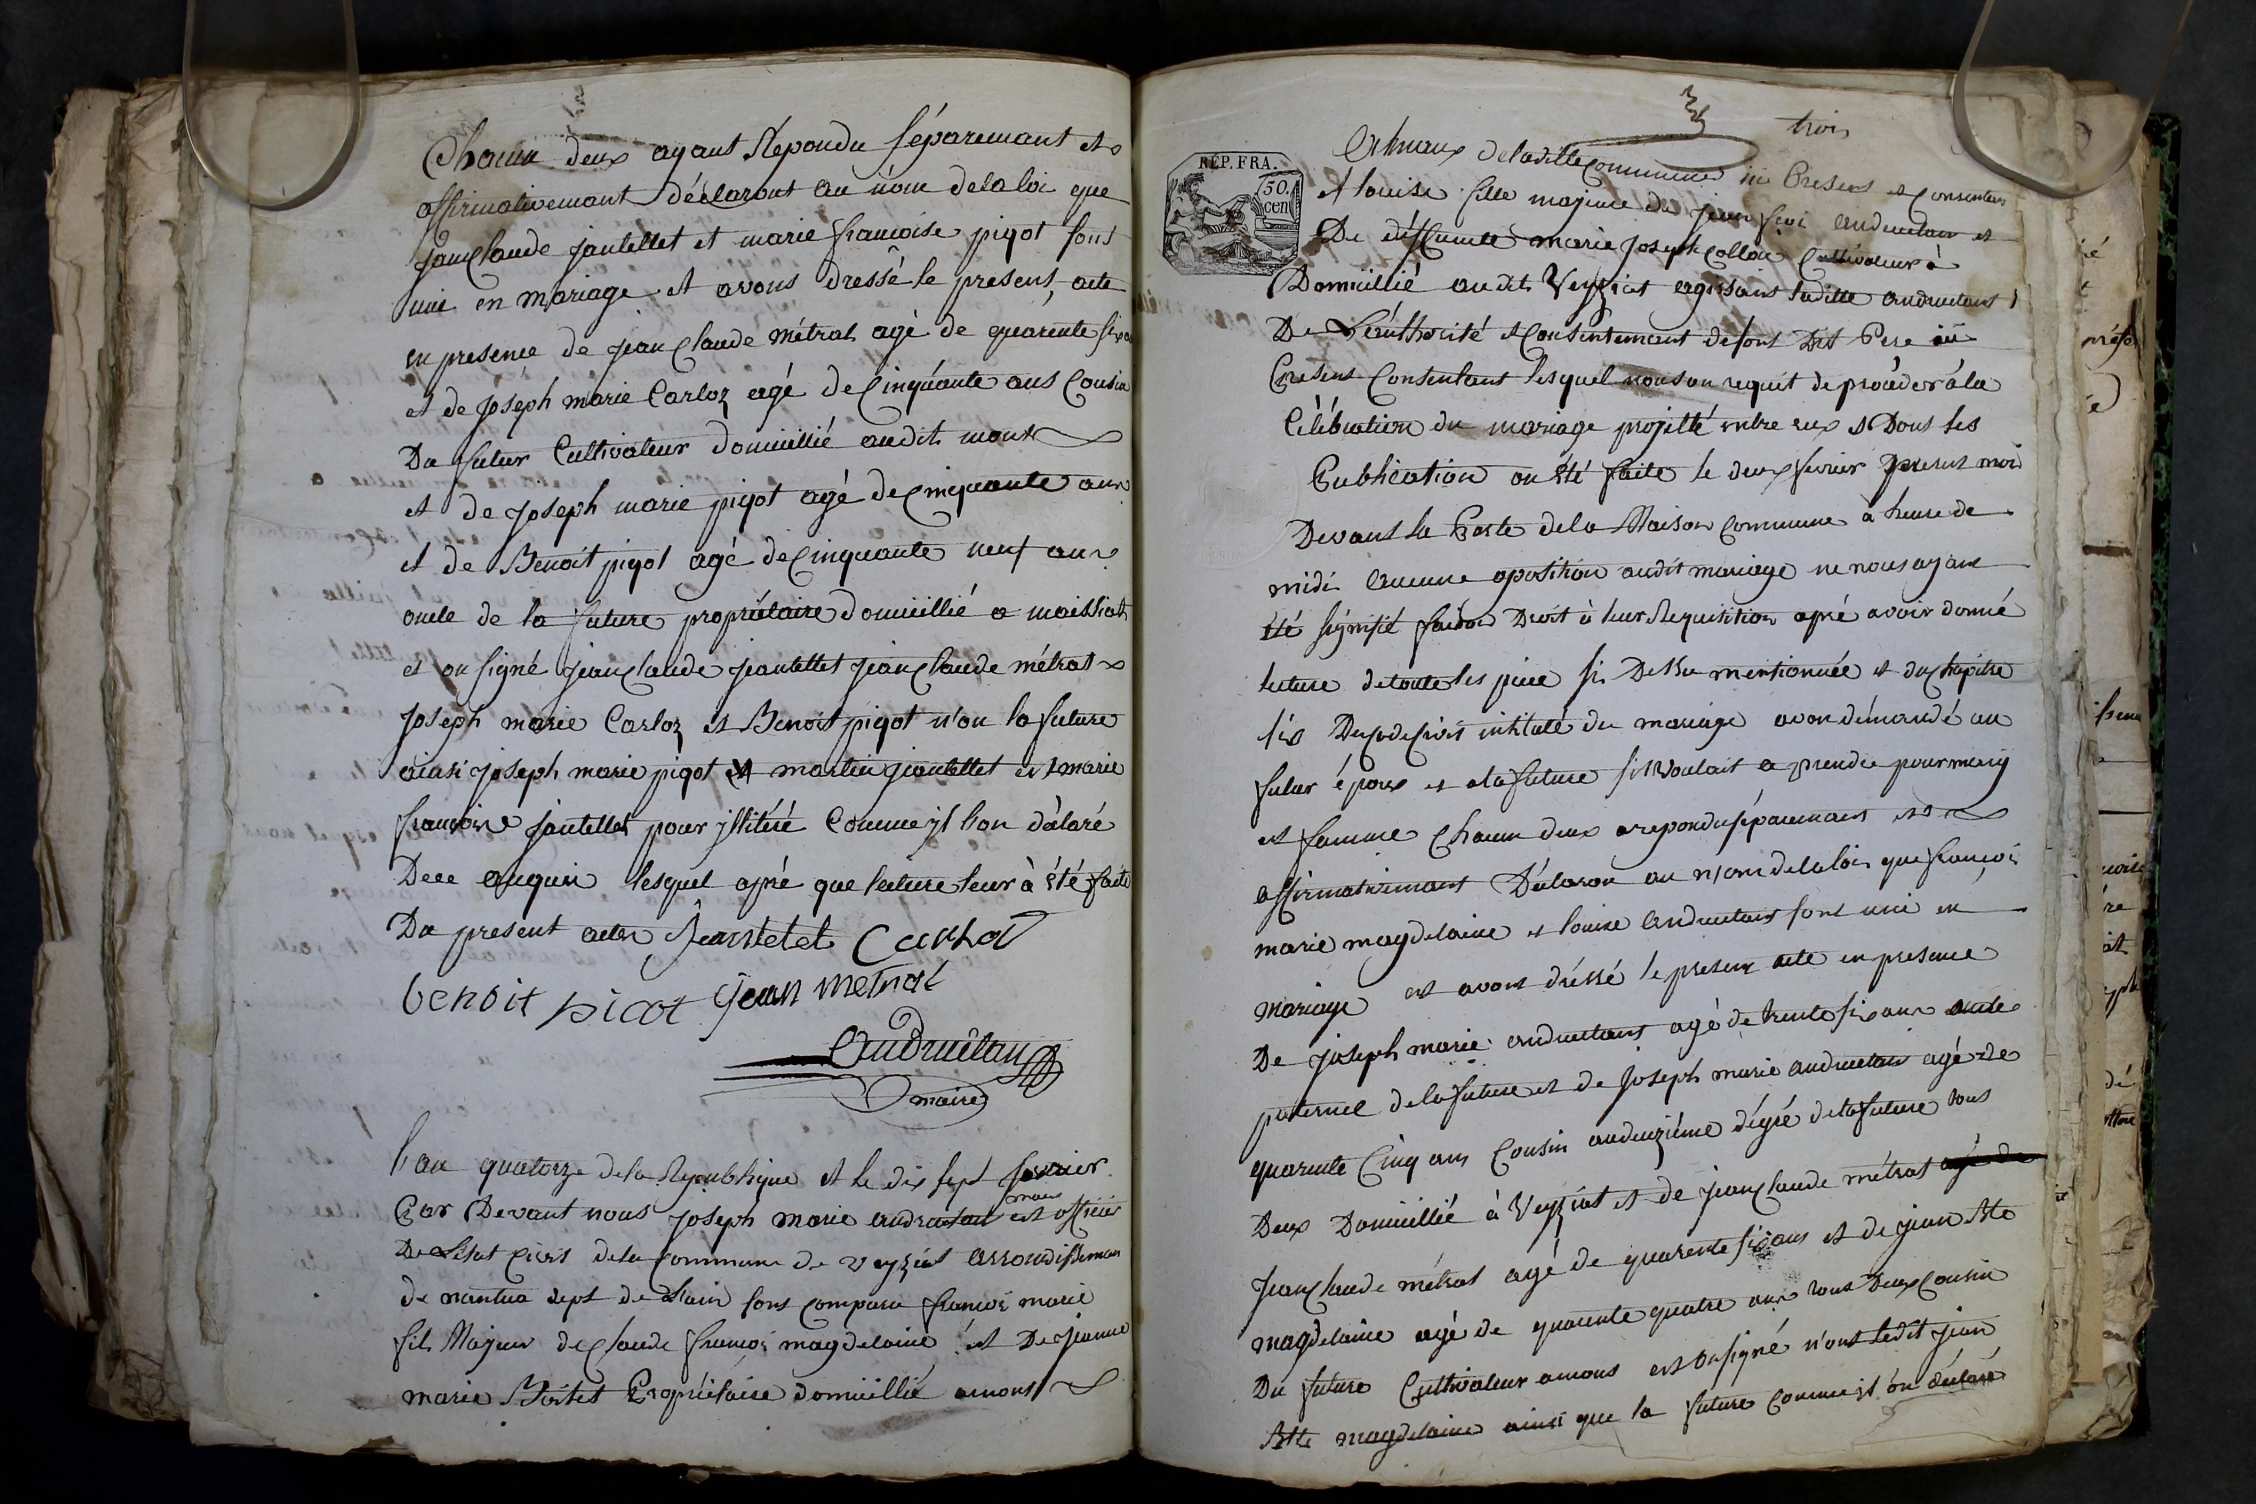 Chacun deux ayant Répondu séparemant et
affirmativemant déclarons au nom dela loi que
jean claude jantellet et marie francoise pigot sont
uni en mariage et avons dressé le present acte
en presence de jean claude métrat agé de quarente six ans
et de Joseph marie Carloz agé de cinquante ans Cousin
Du futur Cultivateur domicillié audit mons
et de joseph marie pigot agé de cinquante ans
et de Benoit pigot agé de cinquante neuf ans
oncle de la future propriétaire domicillié a moissiat
et on signé jean claude jeantettet jean claude métrat
Joseph marie Carloz et Benoit pigot n'on la future
ainsi joseph marie pigot et martin jeantettet et marie
francoise jantellet pour jllitéré Comme jl l'on déclaré
Dece enquis lesquel apré que lecture leur à été faite
Du present acte Jeantetet Carloz
benoit picot jean metrat
Audruétan
maire
Lan quatorze de la Republique et le dix sept fevrier
Par Devant nous Joseph marie andruetan maire et officier
De Létat Civis dela commune de veyziat arrondissemen
de nantua dept de Lain sont comparu francoi marie
fils Majeur de claude francoi magdelaine et De jeanne
marie Bostet Propriétaire domicillié amons
trois
RÉP. FRA.
50.
cen
deladitte commune ici Present et Consentans
et louise fille majeure de jean andruetan et
De déffunte marie joseph Collon Cultivateur à
Domicillié audit Veyziat agissant laditte andruetant
De Lauthorité et Consentemant de son Dit Pere ici
Present Consentant lesquel nous on requit de procéder à la
Célébration du mariage projetté entre eux et Dont les
Publication on été faite le deux fevrier present moi
Devant la Porte dela Maison commune à heure de
midi aucune oposition audit mariage ne nous ayant
été signifié faidon Droit à leur Requisition apré avoir donné
lecture de toute les piece si Dessu mentionnée et du chapitre
six Du code Civis intitulé du mariage avon démandé au
futur époux et a la future sil voulait a prendre pour mary
et famme Chacun deux a repondu séparemant et
affirmativemant Déclaron au nom de la loi que francoi
marie magdelaine et louise andruetant sont uni en
mariage et avons dréssé le present acte en presence
De joseph marie andruetant agé de trente six ans oncle
paternel de la future et de Joseph marie andruetan agé de
quarente Cinq ans Cousin au deuziéme dégré de la future tous
Deux Domicillié à Veyziat et de jean claude métrat agé de
jean claude métrat agé de quarente six ans et de jean Bte
magdelaine agé de quarente quatre ans tous Deux Cousin
Du future Cultivateur amons et on signé n'ont ledit jean
Btte magdelaine ainsi que la future comme jl on déclaré